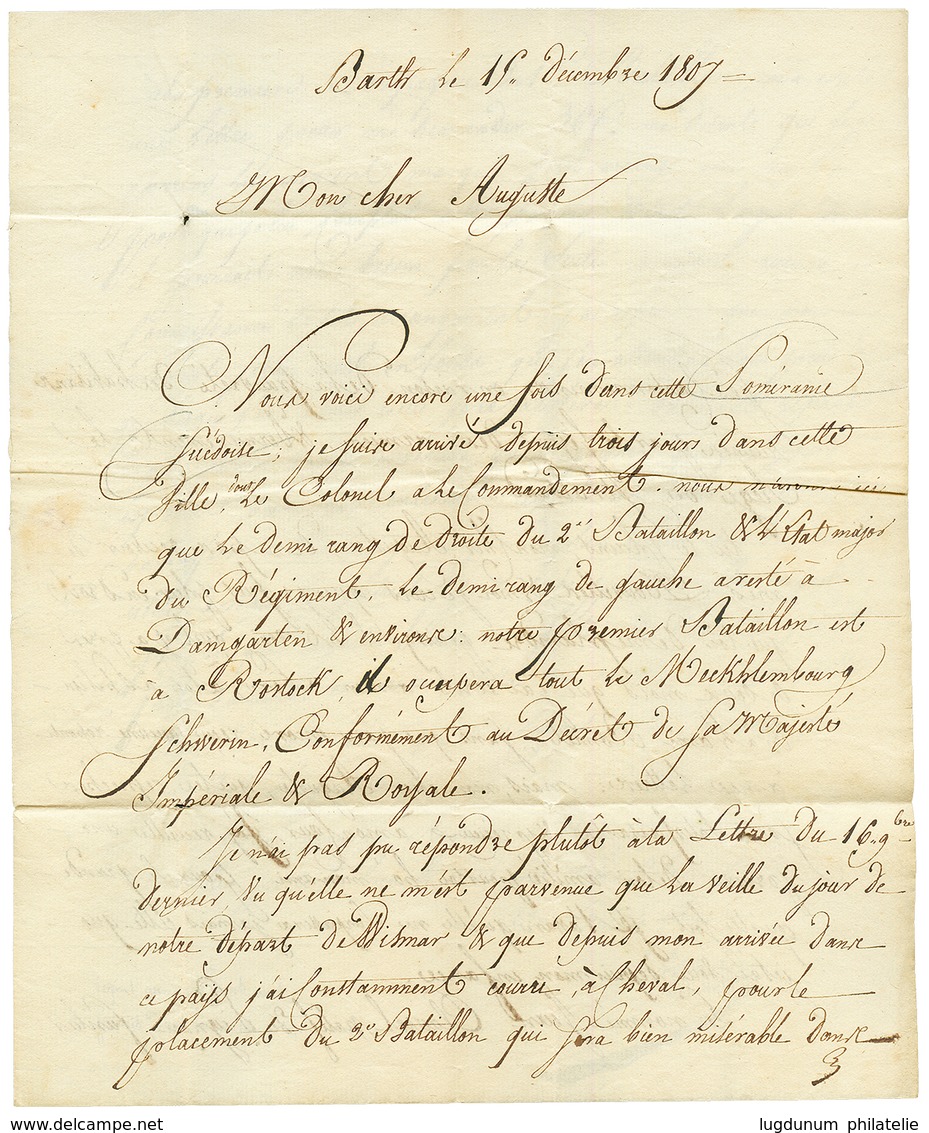 Barth le 15. décembre 1807 =
Mon cher Auguste
Nous voici encore une fois dans cette Poméranie
Suédoise, je suis arrivé depuis trois jours dans cette
Ville, dont le Colonel a le Commandement. nous n'avons ici
que le demi rang de droite du 2e Bataillon & l'Etat major
du Régiment. le demi rang de gauche a resté à
Damgarten & environs: notre premier Bataillon est
à Rostock, il occupera tout le Meckhlembourg
Schwerin, Conformément au Décret de Sa Majesté
Impériale & Royale.
Je n'ai pas pu répondre plutôt à la Lettre du 16. 9bre
dernier, vu qu'elle ne m'est parvenue que la veille du jour de
notre départ de Wismar & que depuis mon arrivée dans
ce pays j'ai Constamment courre, à Cheval, pour le
placement du 2e Bataillon qui sera bien misérable dans
lugdunum philatelie
www.delcampe.net